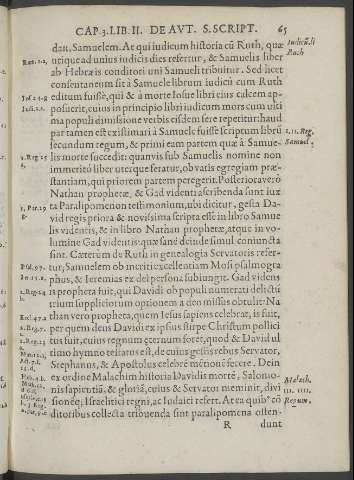 CAP. 3. LIB. II. DE AVT. S. SCRIPT. 65
dan, Samuelem. Ae qui iudicum historia cū Ruth, quæ
utique ad unius iudicis dies refertur, & Samuelis liber
ab Hebræis conditori uni Samueli tribuitur. Sed licet
consentaneum sit à Samuele librum iudicū cum Ruth
editum fuisse, qui & à morte Iosue libri eius calcem ap-
posuerit, cuius in principio libri iudicum mors cum ulti
ma populi dimissione verbis eisdem fere repetitur: haud
par tamen est existimari à Samuele fuisse scriptum librū
secundum regum, & primi eam partem quæ à Samue-
lis morte succedit: quamvis sub Samuelis nomine non
immeritò liber uterque feratur, ob vatis egregiam præ-
stantiam, qui priorem partem peregerit. Posteriora verò
Nathan prophetæ, & Gad videnti ascribenda sunt iux
ta Paralipomenon testimonium, ubi dicitur, gesta Da-
vid regis priora & novissima scripta esse in libro Samue
lis videntis, & in libro Nathan prophetæ, atque in vo-
lumine Gad videntis: quæ sanè deinde simul coniuncta
sint. Cæterùm de Ruth in genealogia Servatoris refer-
tur, Samuelem ob meriti excellentiam Mosi psalmogra
phus, & Ieremias ex dei persona subiungit. Gad videns
is propheta fuit, qui Davidi ob populi numerati delictū
trium suppliciorum optionem à deo missus obtulit: Na
than vero propheta, quem Iesus sapiens celebrat, is fuit,
per quem deus Davidi ex ipsius stirpe Christum pollici
tus fuit, cuius regnum æternum foret, quod & David ul
timo hymno testatus est, de cuius gestis rebus Servator,
Stephanus, & Apostolus celebrē mētionē fecere. Dein
ex ordine Malachim historia Davidis mortē, Salomo-
nis sapientiā, & gloriā, cuius & Servator meminit, divi
sionēq; Israelitici regni, ac Iudaici refert. At ea quib⁹ cō
ditoribus collecta tribuenda sint paralipomena osten-
R dunt
Iudicū. li
Ruth
1. 11. Reg.
Samuel.
Malach.
III. IIII.
Regum.